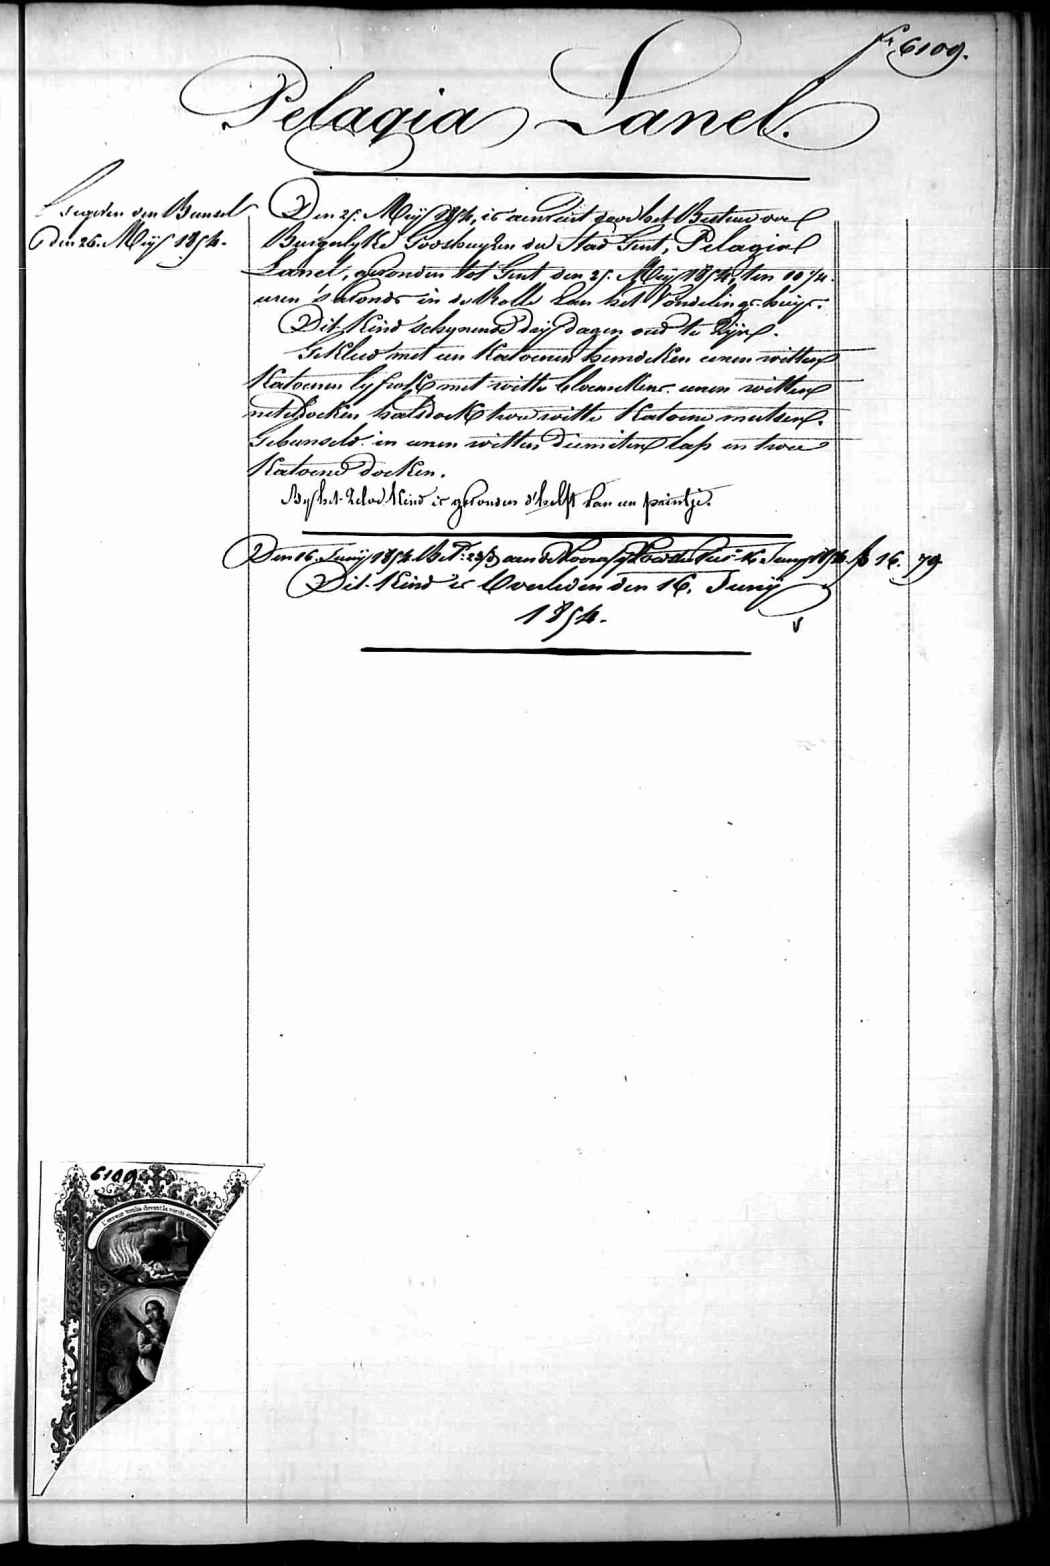 N° 6109.
Pelagia Lanel.
den 26. Meij 1854.
Den 25. Meij 1854, is aenveird door het Bestuer over
Burgerlyke Godshuyzen der Stad Gent, Pelagia
Lanel, gevonden tot Gent den 25. Meij 1854, ten 10 3/4
uren 's avonds in de Rolle van het Vondelings-huys.
Dit Kind schynende dry dagen oud te zyn.
Gekleed met een Katoenen hemdeken eenen witten
Katoenen lyfrok met witte bloemekens eenen witten
neteldoeken halsdoek twee witte Katoene mutsen.
Gebunseld in eenen witten diemiten lap en twee
Katoene doeken.
By het zelve Kind is gevonden d'helft van een printje.
Den 16 Junij 1854 Bet. aan de Voedster 16 Junij 1854 fr 16. 79
Dit Kind is Overleden den 16. Junij
1854.
6109